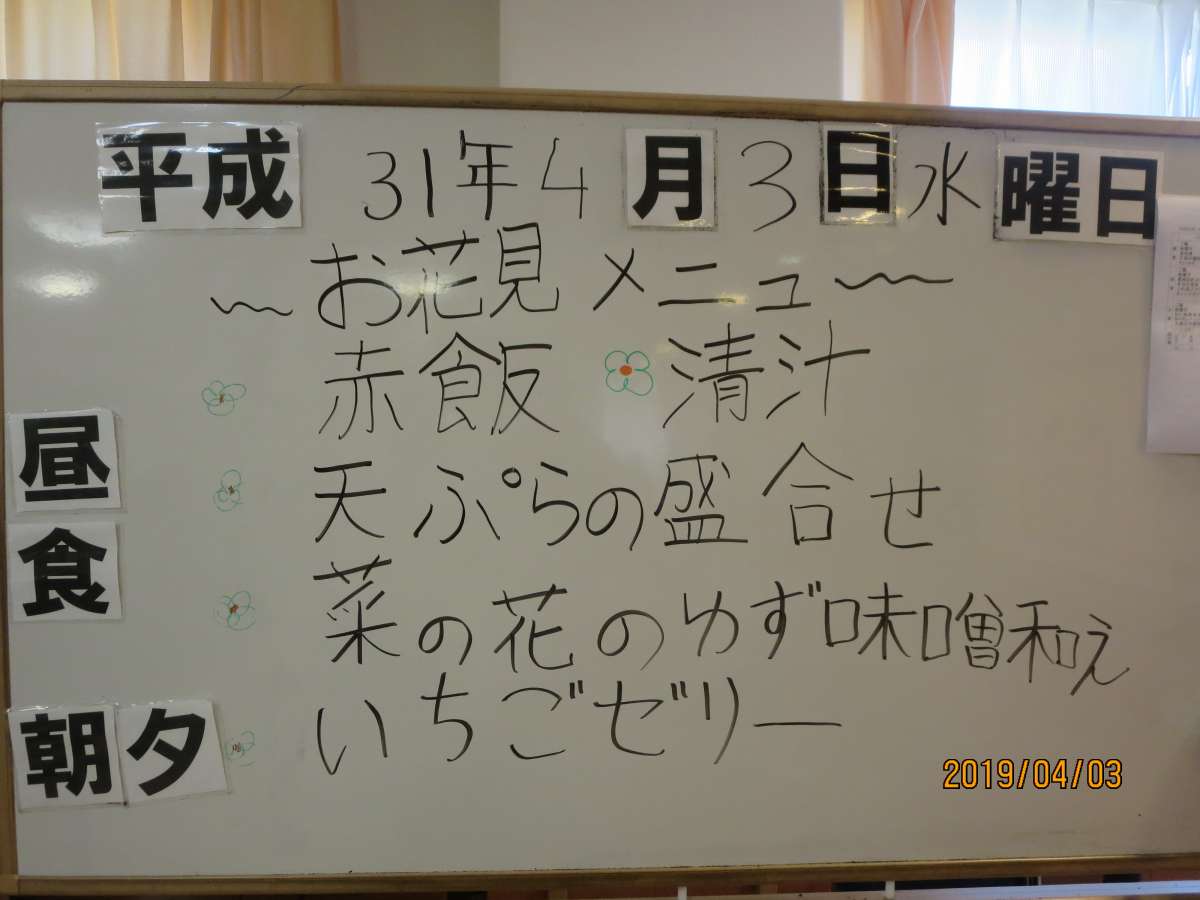 平成 31年4月3日水曜日
～お花見メニュー～
赤飯 清汁
昼食
天ぷらの盛合せ
菜の花のゆず味噌和え
朝夕
いちごゼリー
2019/04/03